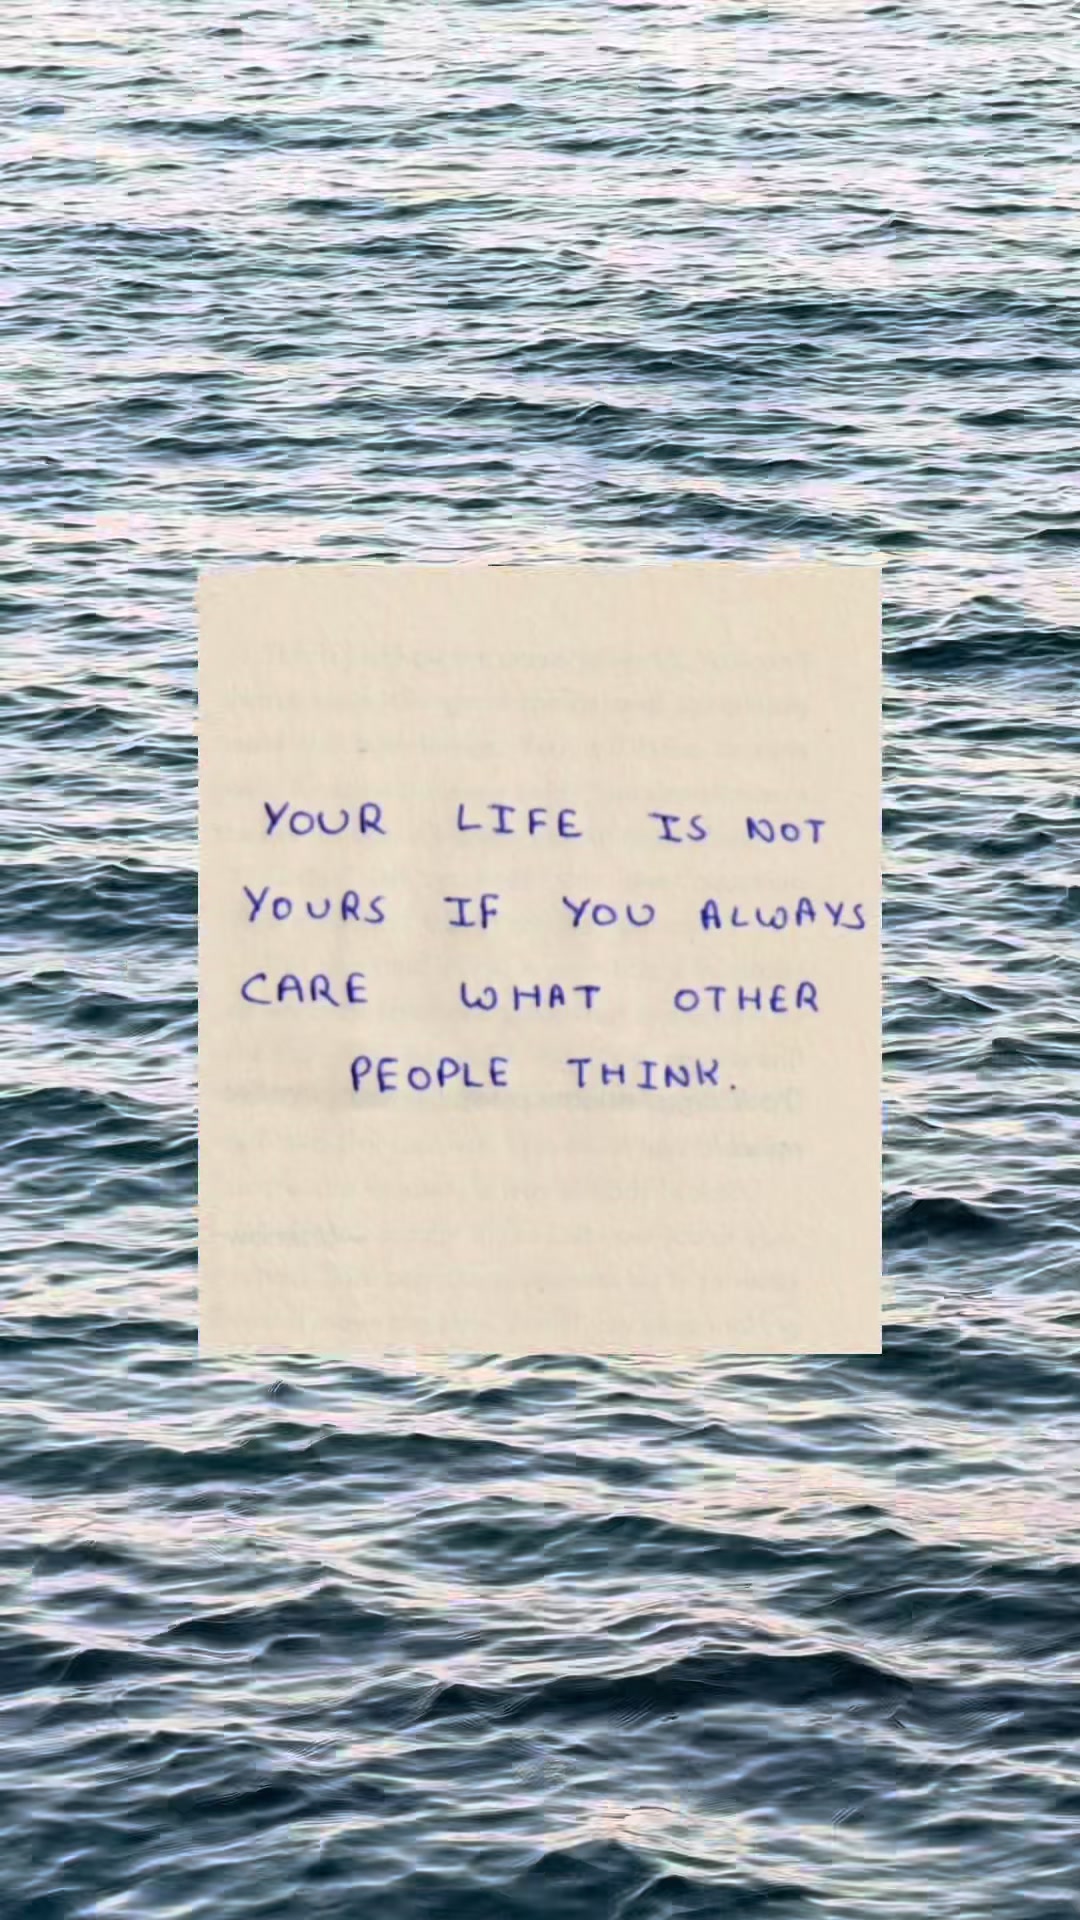 YOUR LIFE IS NOT
YOURS IF YOU ALWAYS
CARE WHAT OTHER
PEOPLE THINK.